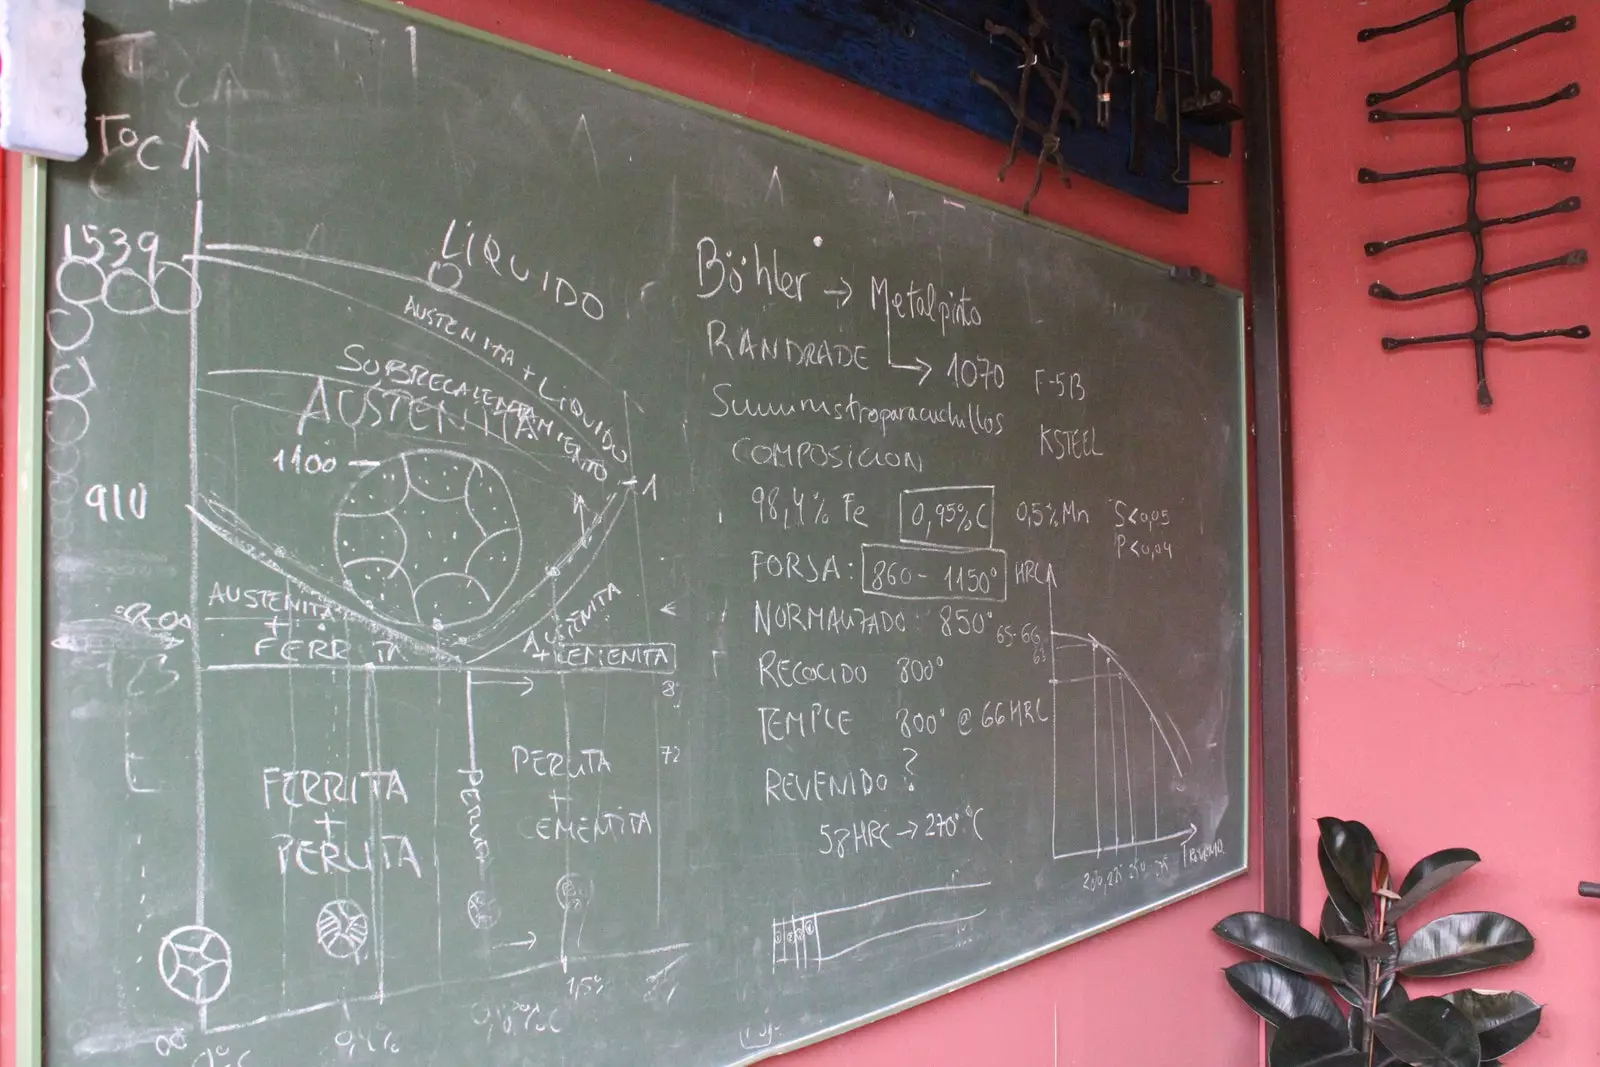 T°C
1539
LÍQUIDO
AUSTENITA + LIQUIDO
SOBRECALENTAMIENTO
AUSTENITA
1100
910
AUSTENITA
+
FERRITA
AUSTENITA
+ CEMENITA
FERRITA
+
PERLITA
PERLITA
PERLITA
+
CEMENTITA
72
1,5%
Böhler → Metalpinto
RANDRADE → 1070 F-513
Suministroparacuchillos
KSTEEL
COMPOSICION
98,4% Fe 0,95%C 0,5%Mn S<0,05
P<0,04
FORJA: 860-1150° HRC
NORMALIZADO 850°
65-66
63
RECOCIDO 800°
TEMPLE 800° @ 66HRC
REVENIDO?
58HRC → 270°C